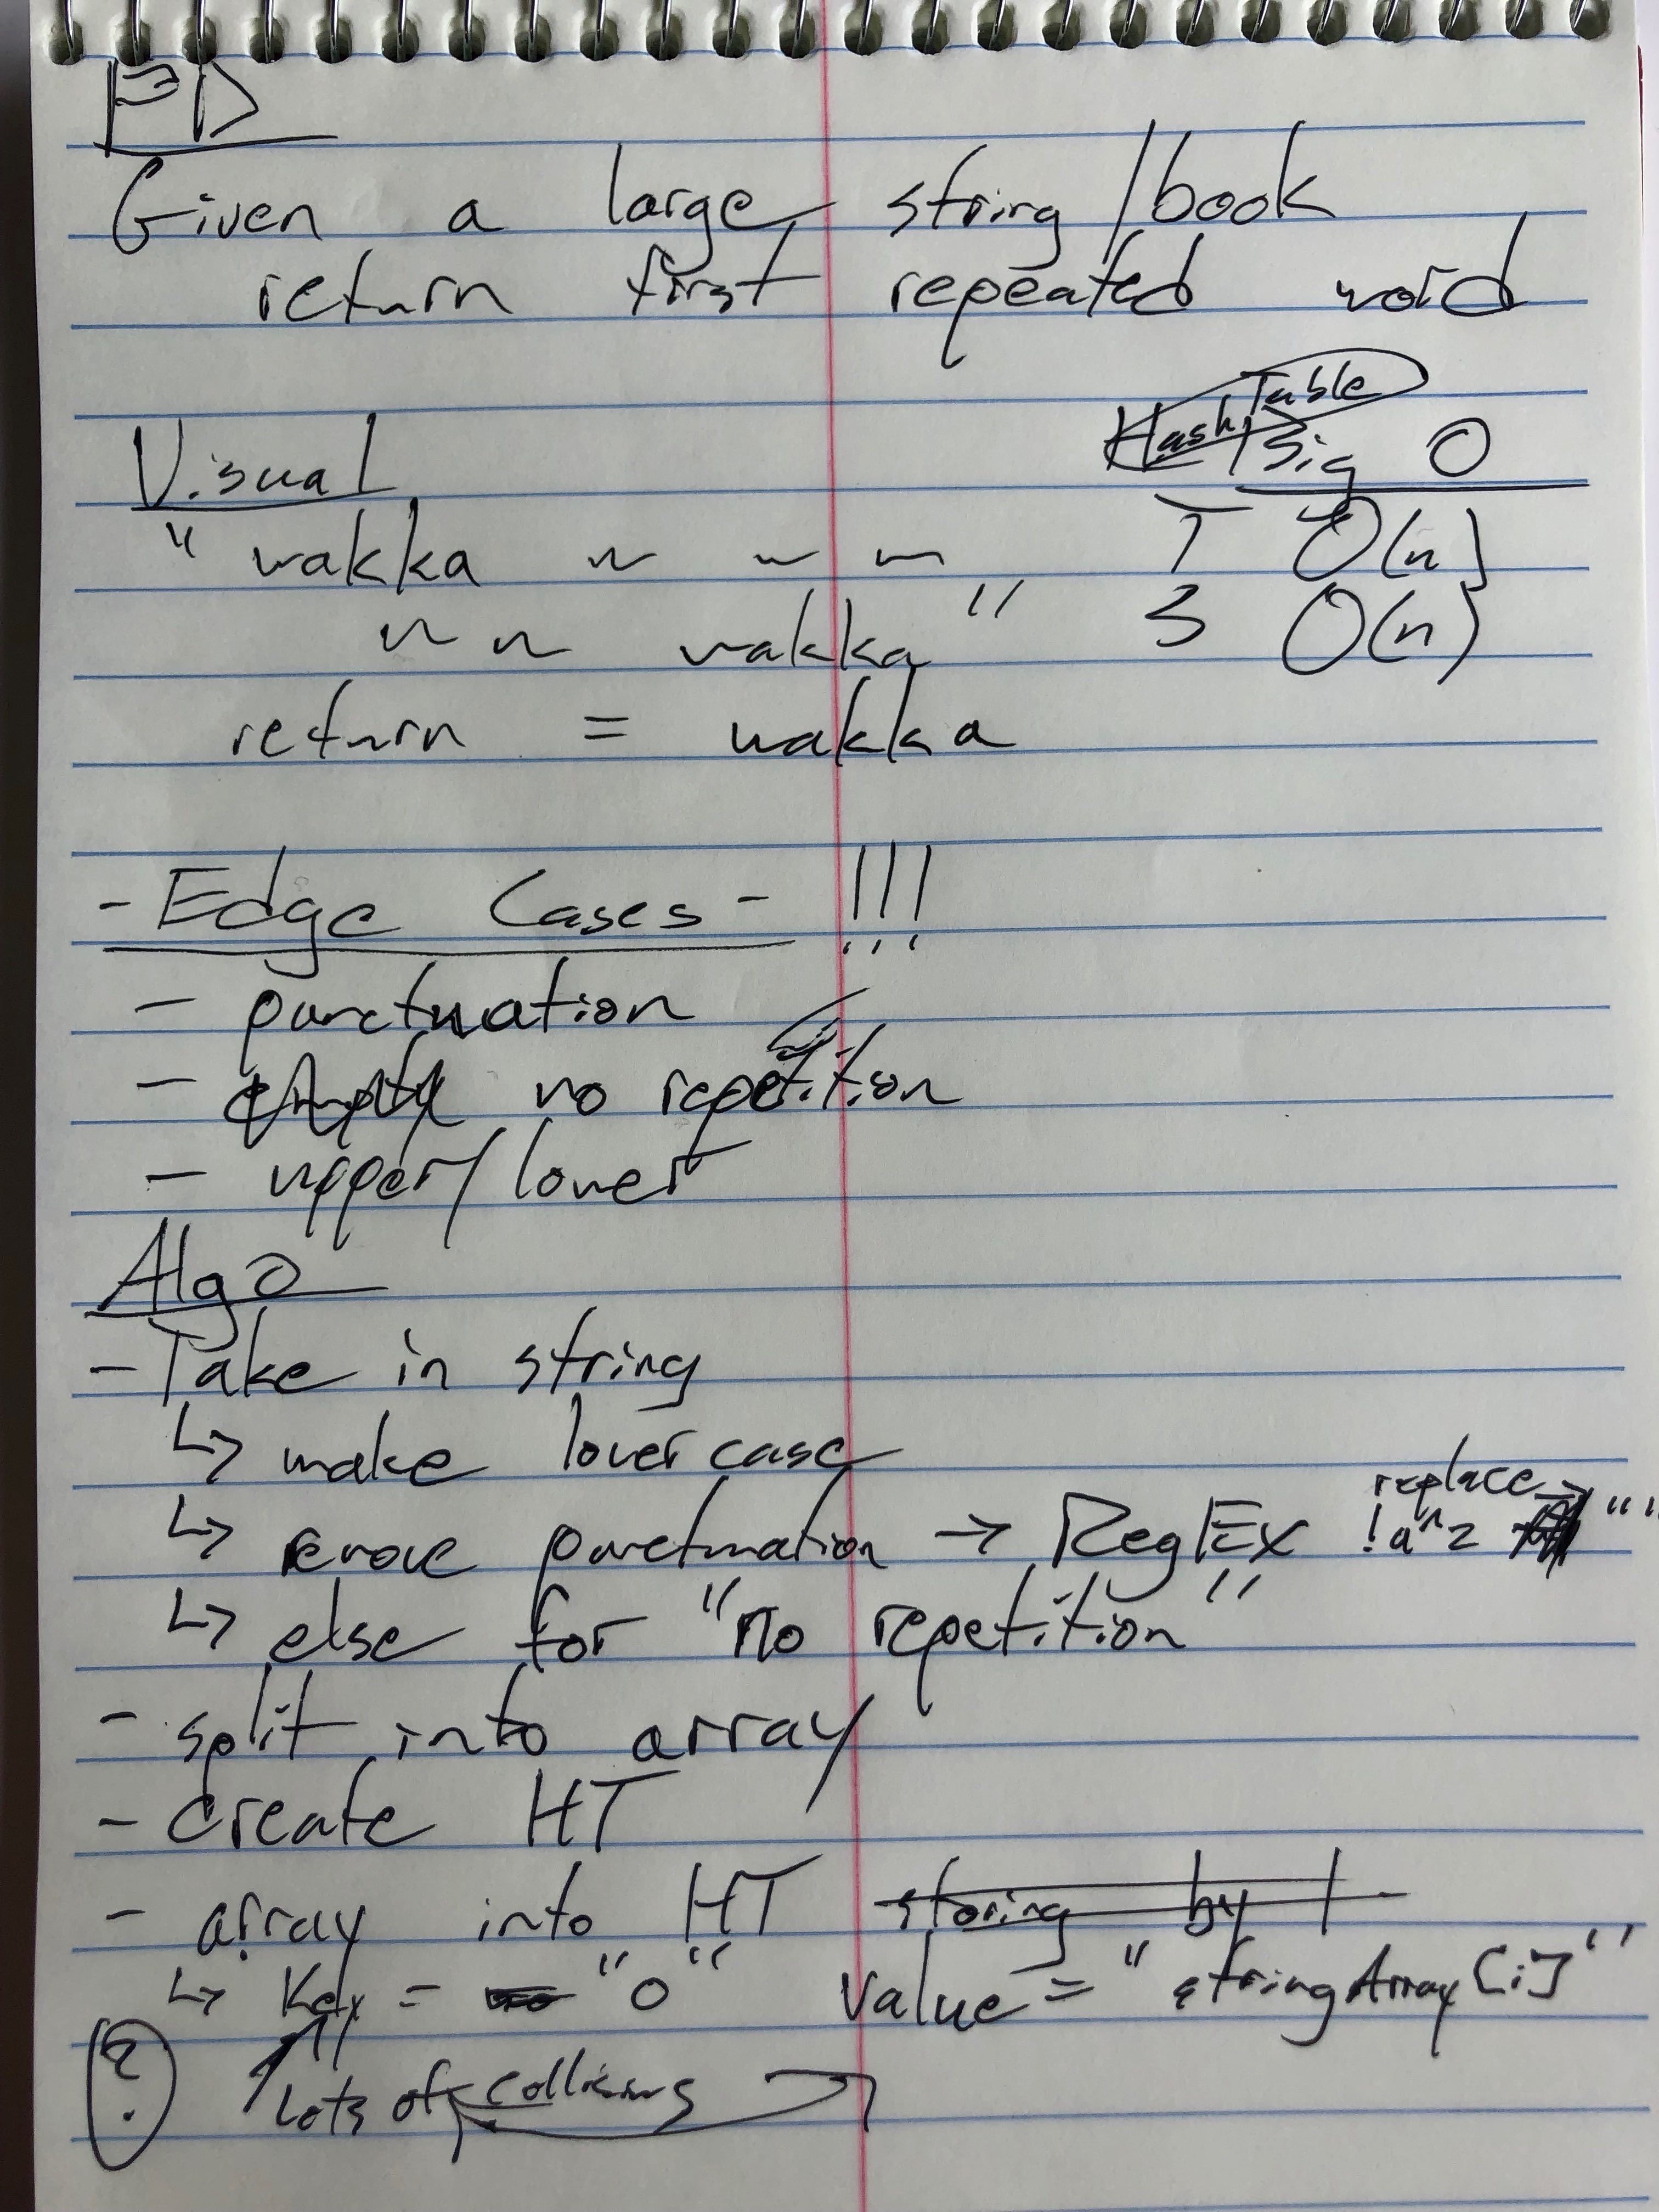 PD
Given a large string/book
return first repeated word
Hash Table
Visual
Big O
"wakka
T O(n)
wakka"
S O(n)
return = wakka
- Edge Cases - !!!
- punctuation
- empty no repetition
- upper/lower
Algo
- Take in string
↳ make lower case
replace →
↳ remove punctuation → RegEx !a^z " "
↳ else for "no repetition"
- split into array
- create HT
- array into HT storing by 1
↳ Key = "0" value = "stringArray[i]"
?
lots of collisions